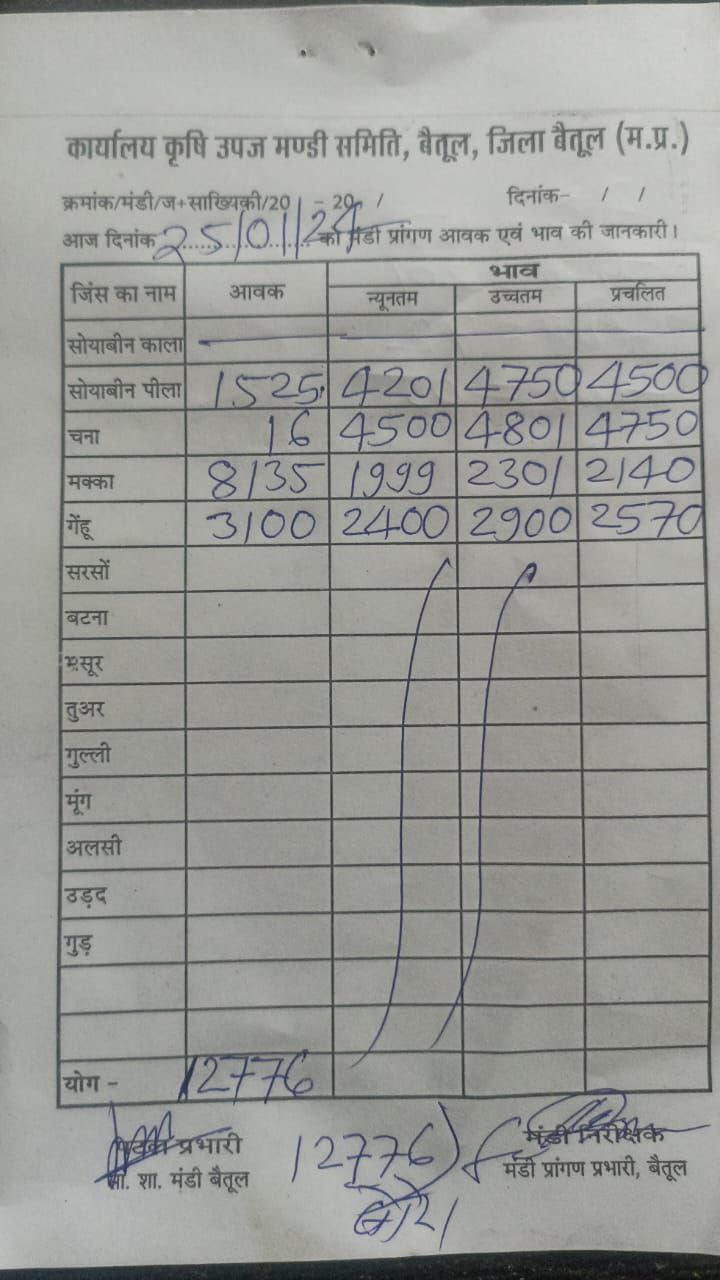 कार्यालय कृषि उपज मण्डी समिति, बैतूल, जिला बैतूल (म.प्र.)
क्रमांक/मंडी/ज+साख्यिकी/20 - 20 / दिनांक- / /
आज दिनांक 25/01/24 को मंडी प्रांगण आवक एवं भाव की जानकारी।
जिंस का नाम आवक भाव
न्यूनतम उच्चतम प्रचलित
सोयाबीन काला —
सोयाबीन पीला 1525 4201 4750 4500
चना 16 4500 4801 4750
मक्का 8135 1999 2301 2140
गेंहू 3100 2400 2900 2570
सरसों
बटना
मसूर
तुअर
गुल्ली
मूंग
अलसी
उड़द
गुड़
योग - 12776
प्रभारी 12776 मंडी निरीक्षक
शा. मंडी बैतूल मंडी प्रांगण प्रभारी, बैतूल